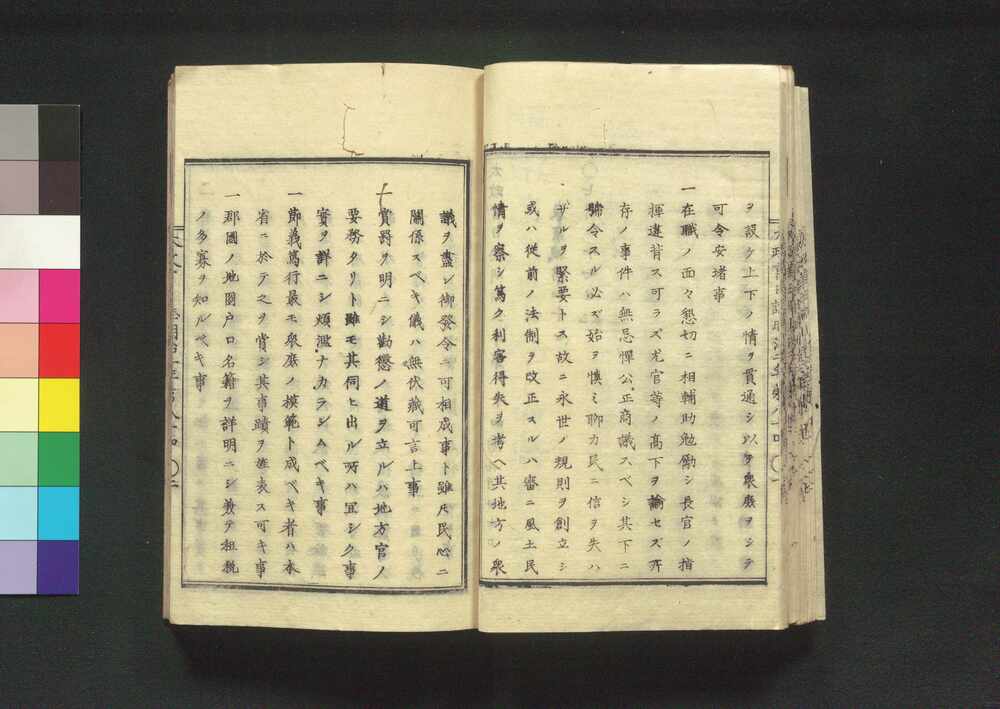 ヲ設ケ上下ノ情ヲ貫通シ以テ衆庶ヲシテ
可令安堵事
一在職ノ面々懇切ニ相輔助勉勵シ長官ノ指
揮違背ス可ラズ尤官等ノ高下ヲ論セズ所
存ノ事件ハ無忌憚公正商議スベシ其下ニ
號令スル必ズ始ヲ慎ミ聊カ民ニ信ヲ失ハ
ザルヲ緊要トス故ニ永世ノ規則ヲ創立シ
或ハ從前ノ法制ヲ改正スルハ審ニ風土民
情ヲ察シ篤ク利害得失ヲ考ヘ其地方ノ衆
議ヲ盡シ御發令ニ可相成事ト雖𪜈民心ニ
關係スベキ儀ハ無伏藏可言上事
一賞罸ヲ明ニシ勸懲ノ道ヲ立ルハ地方官ノ
要務タリト雖モ其伺ヒ出ル所ハ冝シク事
實ヲ詳ニシ煩濫ナカラシムベキ事
一節義篤行最モ衆庶ノ模範ト成ベキ者ハ本
省ニ於テ之ヲ賞シ其事蹟ヲ旌表ス可キ事
一郡國ノ地圖戸口名籍ヲ詳明ニシ教テ租税
ノ多寡ヲ知ルベキ事